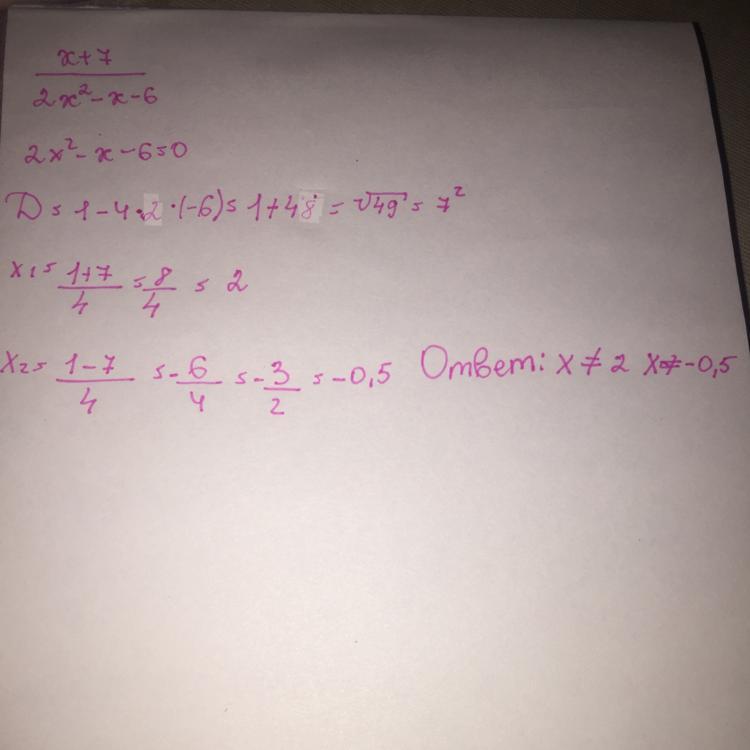 x+7
2x²-x-6
2x²-x-6=0
D=1-4·2·(-6)=1+48=√49=7²
x1=1+7/4=8/4=2
x2=1-7/4=-6/4=-3/2=-0,5 Ответ: x≠2 x≠-0,5